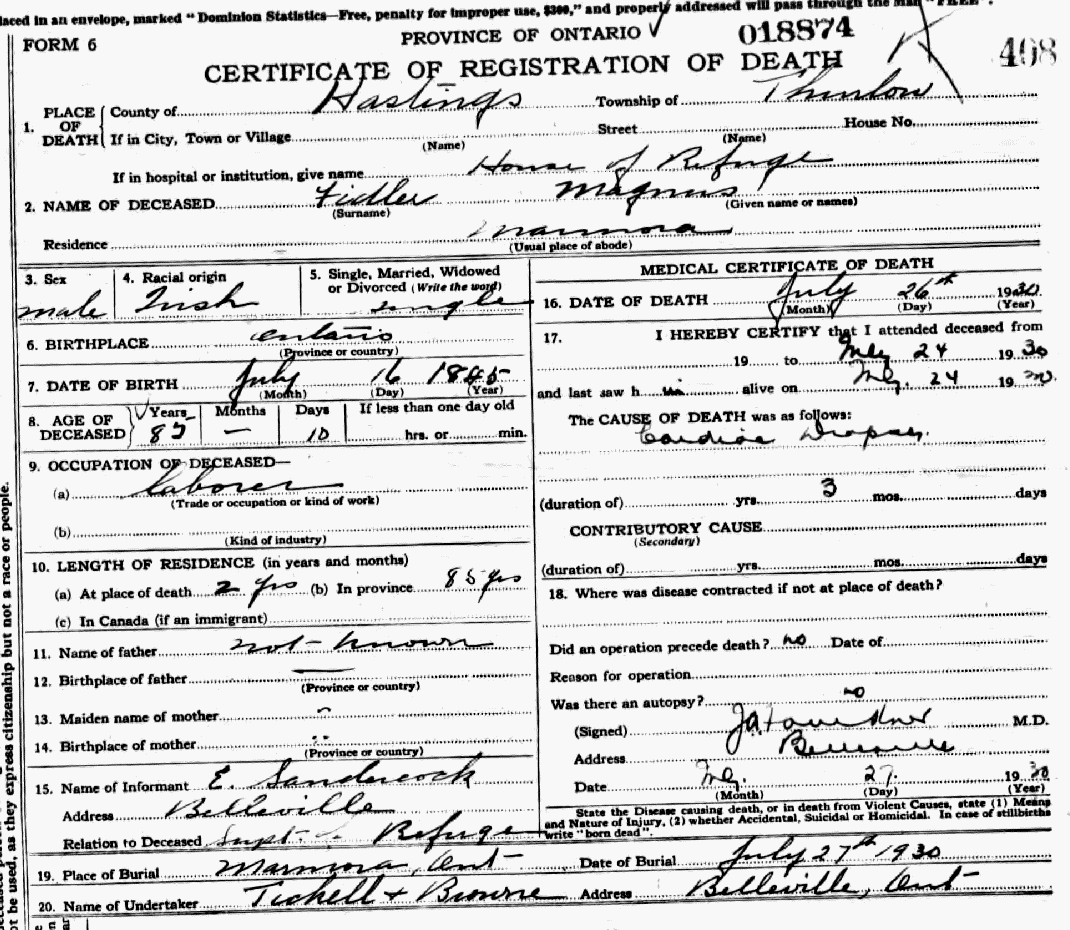 laced in an envelope, marked "Dominion Statistics—Free, penalty for improper use, $300," and properly addressed will pass through the Mail "FREE".
FORM 6 PROVINCE OF ONTARIO 018874
CERTIFICATE OF REGISTRATION OF DEATH 408
1. PLACE OF DEATH County of Hastings Township of Thurlow
If in City, Town or Village (Name) Street (Name) House No.
If in hospital or institution, give name House of Refuge
2. NAME OF DECEASED Fidler (Surname) Magnus (Given name or names)
Residence Marmora (Usual place of abode)
3. Sex male 4. Racial origin Irish 5. Single, Married, Widowed or Divorced (Write the word) single
6. BIRTHPLACE Ontario (Province or country)
7. DATE OF BIRTH July (Month) 16 (Day) 1845 (Year)
8. AGE OF DECEASED Years 85 Months — Days 10 If less than one day old hrs. or min.
9. OCCUPATION OF DECEASED—
(a) Laborer (Trade or occupation or kind of work)
(b) (Kind of industry)
10. LENGTH OF RESIDENCE (in years and months)
(a) At place of death 2 yrs (b) In province 85 yrs
(c) In Canada (if an immigrant)
11. Name of father not known
12. Birthplace of father — (Province or country)
13. Maiden name of mother
14. Birthplace of mother (Province or country)
15. Name of Informant E. Sandercock
Address Belleville
Relation to Deceased Supt Refuge
MEDICAL CERTIFICATE OF DEATH
16. DATE OF DEATH July (Month) 26th (Day) 1930 (Year)
17. I HEREBY CERTIFY that I attended deceased from
19 to July 24 1930
and last saw him alive on July 24 1930
The CAUSE OF DEATH was as follows:
Cardiac Dropsy.
(duration of) yrs. 3 mos. days
CONTRIBUTORY CAUSE (Secondary)
(duration of) yrs. mos. days
18. Where was disease contracted if not at place of death?
Did an operation precede death? no Date of
Reason for operation
Was there an autopsy? no
(Signed) M.D.
Address Belleville
Date July (Month) 27 (Day) 1930 (Year)
State the Disease causing death, or in death from Violent Causes, state (1) Means
and Nature of Injury, (2) whether Accidental, Suicidal or Homicidal. In case of stillbirths
write "born dead".
19. Place of Burial Marmora, Ont Date of Burial July 27th 1930
20. Name of Undertaker Tickell & Browne Address Belleville, Ont
ot be used, as they express citizenship but not a race or people.